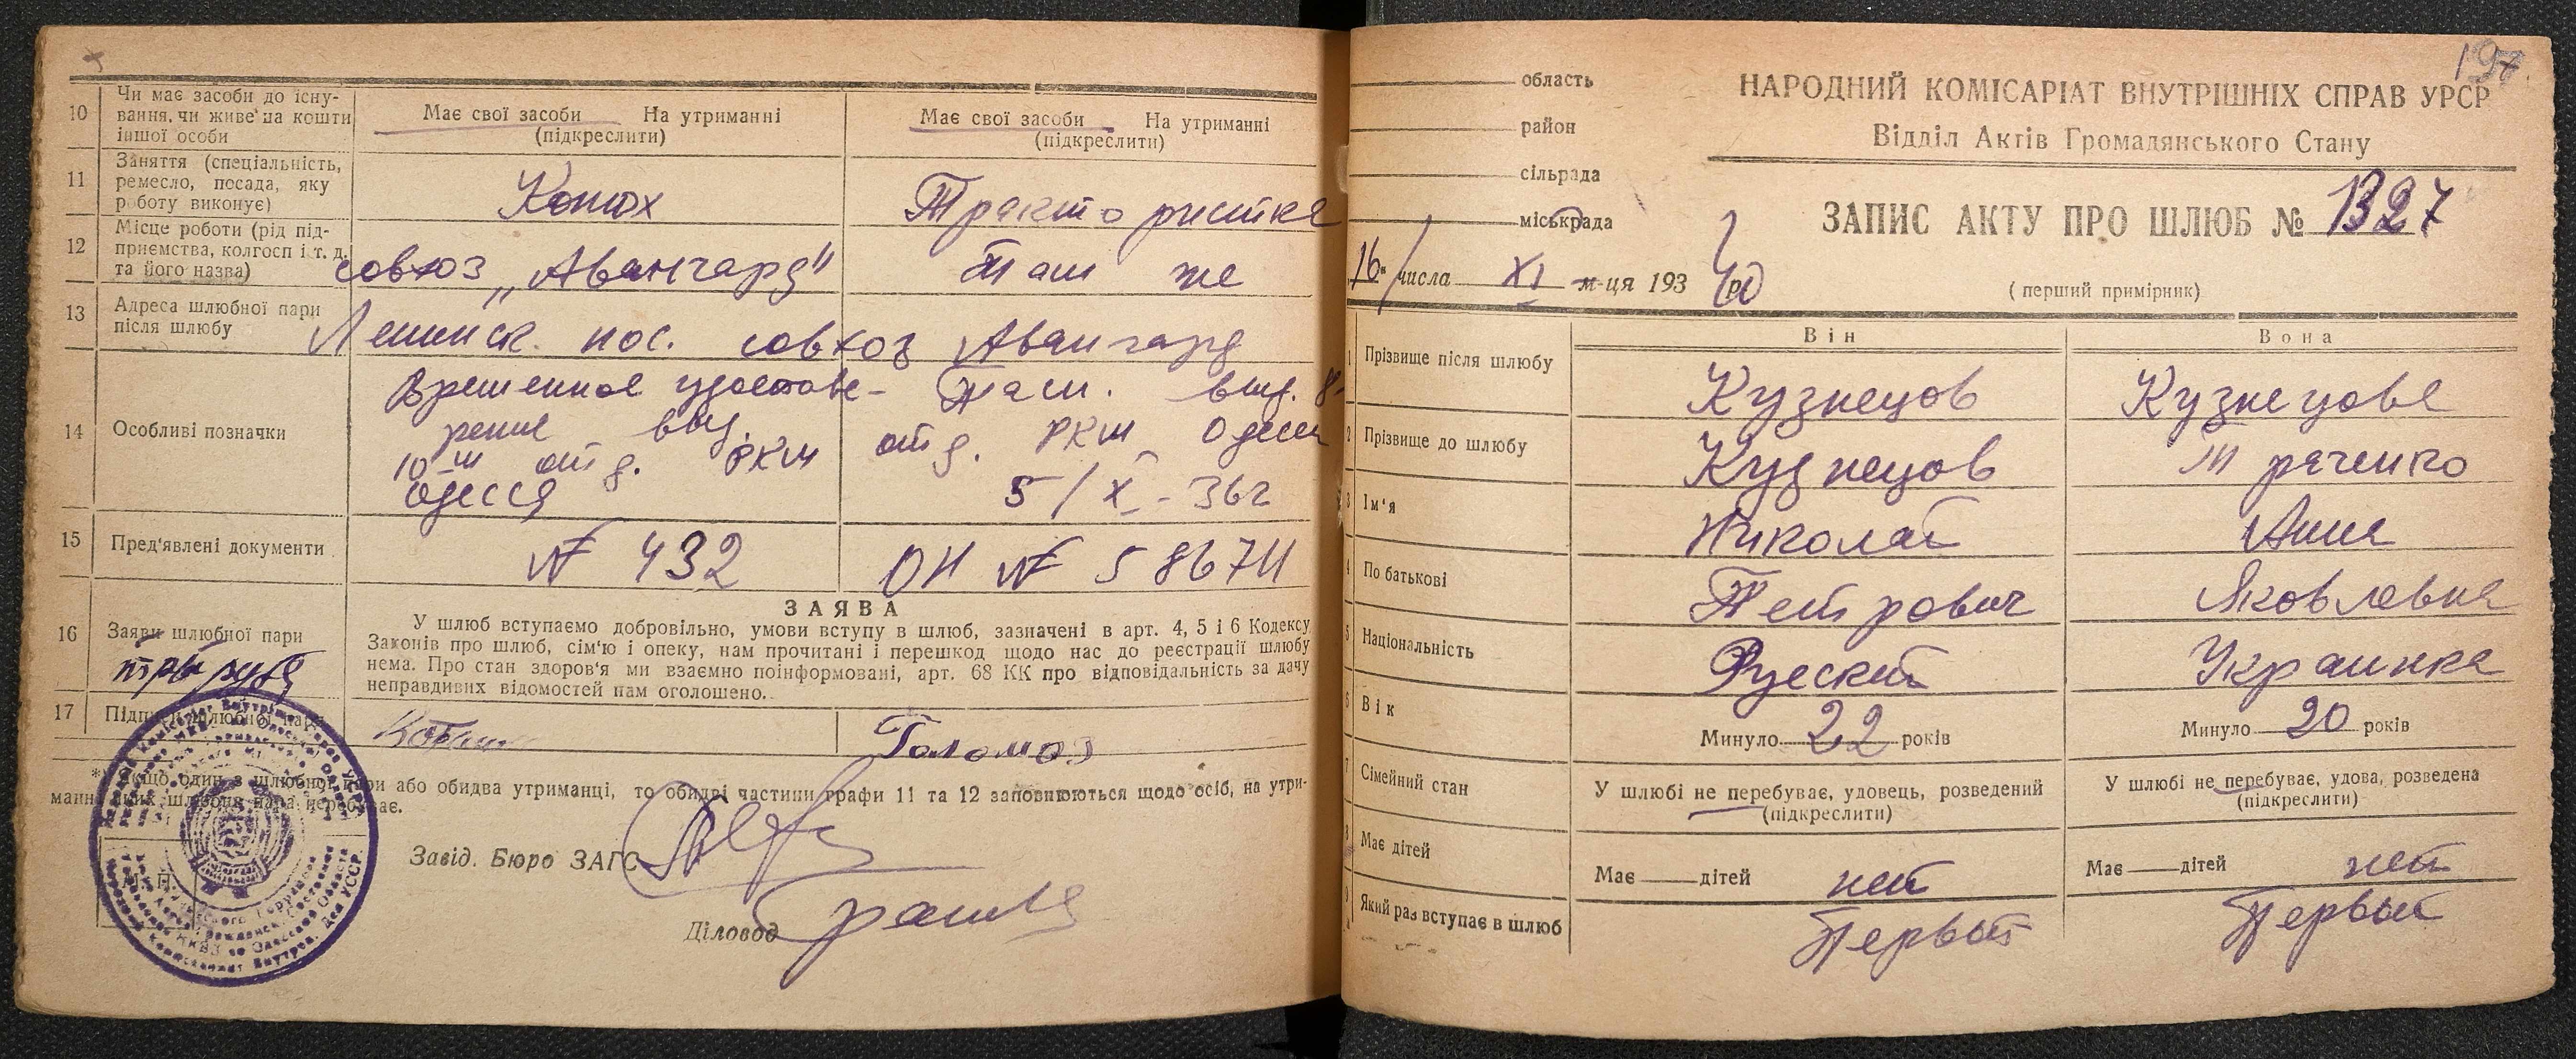 10 Чи має засоби до існу-
вання, чи живе на кошти
іншої особи
Має свої засоби На утриманні
(підкреслити)
Має свої засоби На утриманні
(підкреслити)
11 Заняття (спеціальність,
ремесло, посада, яку
роботу виконує)
Конюх
Трактористка
12 Місце роботи (рід під-
приємства, колгосп і т. д.
та його назва)
совхоз „Авангард"
там же
13 Адреса шлюбної пари
після шлюбу
Ленинск. пос. совхоз Авангард
14 Особливі позначки
Временное удостове-
рение выд.
10-м отд. РКМ
Одесса
Пасп. выд. 8-
отд. РКМ Одессы
5/X - 36 г
15 Пред'явлені документи
№ 432
ОН № 586711
16 Заяви шлюбної пари
три рубя
ЗАЯВА
У шлюб вступаємо добровільно, умови вступу в шлюб, зазначені в арт. 4, 5 і 6 Кодексу
Законів про шлюб, сім'ю і опеку, нам прочитані і перешкод щодо нас до реєстрації шлюбу
нема. Про стан здоров'я ми взаємно поінформовані, арт. 68 КК про відповідальність за дачу
неправдивих відомостей нам оголошено.
17 Підписи шлюбної пари
Голомоз
*) Якщо один з шлюбної пари або обидва утриманці, то обидві частини графи 11 та 12 заповнюються щодо осіб, на утри-
манні яких шлюбна пара перебуває.
М. П.
Завід. Бюро ЗАГС
Діловод
197.
область
район
сільрада
міськрада
НАРОДНИЙ КОМІСАРІАТ ВНУТРІШНІХ СПРАВ УРСР
Відділ Актів Громадянського Стану
ЗАПИС АКТУ ПРО ШЛЮБ № 1327
„16" числа XI м-ця 193 40 р.
(перший примірник)
Він
Вона
1 Прізвище після шлюбу
Кузнецов
Кузнецова
2 Прізвище до шлюбу
Кузнецов
Траченко
3 Ім'я
Николай
Анна
4 По батькові
Петрович
Яковлевна
5 Національність
Русский
Украинка
6 Вік
Минуло 22 років
Минуло 20 років
7 Сімейний стан
У шлюбі не перебуває, удовець, розведений
(підкреслити)
У шлюбі не перебуває, удова, розведена
(підкреслити)
8 Має дітей
Має дітей нет
Має дітей нет
9 Який раз вступає в шлюб
Первый
Первый